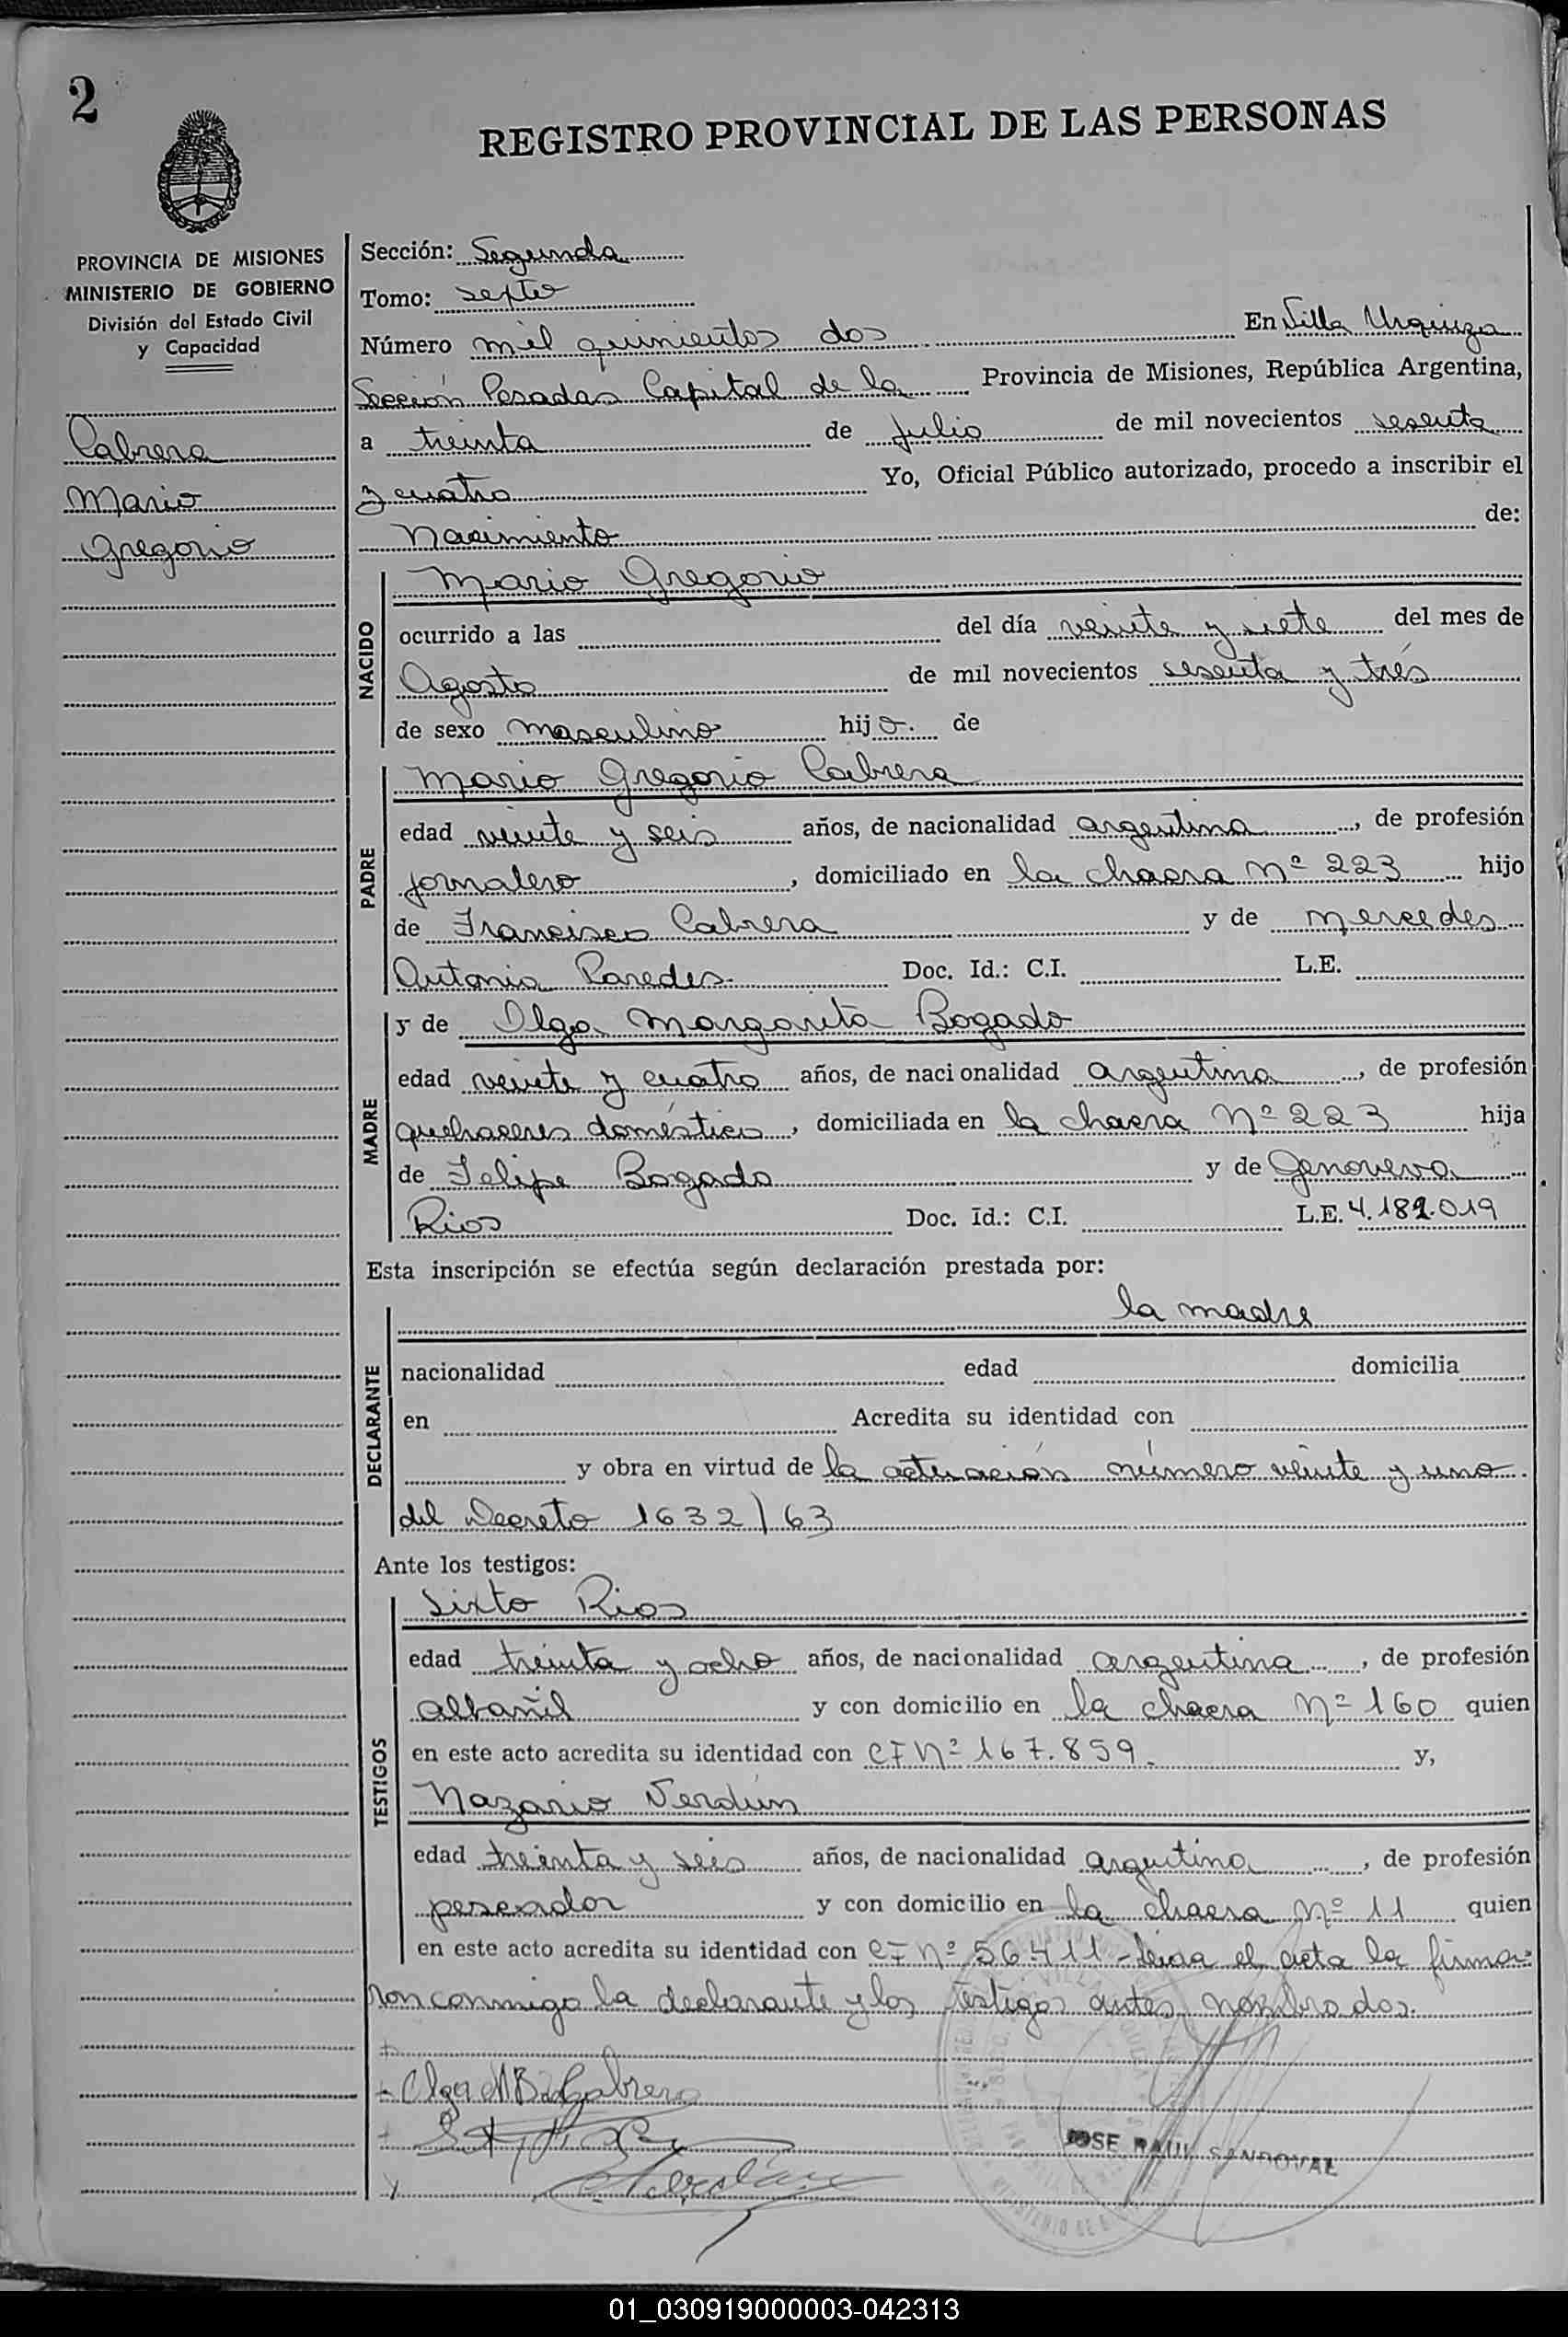 2
REGISTRO PROVINCIAL DE LAS PERSONAS
PROVINCIA DE MISIONES
MINISTERIO DE GOBIERNO
División del Estado Civil
y Capacidad
Cabrera
Mario
Gregorio
Sección: Segunda
Tomo: sexto
Número mil quinientos dos En Villa Urquiza
Sección Posadas Capital de la Provincia de Misiones, República Argentina,
a treinta de Julio de mil novecientos sesenta
y cuatro Yo, Oficial Público autorizado, procedo a inscribir el
Nacimiento de:
NACIDO
Mario Gregorio
ocurrido a las del día veinte y siete del mes de
Agosto de mil novecientos sesenta y trés
de sexo masculino hijo. de
PADRE
Mario Gregorio Cabrera
edad veinte y seis años, de nacionalidad argentina, de profesión
jornalero, domiciliado en la chacra Nº 223 hijo
de Francisco Cabrera y de Mercedes
Antonia Paredes. Doc. Id.: C.I. L.E.
MADRE
y de Olga Margarita Bogado
edad veinte y cuatro años, de nacionalidad argentina, de profesión
quehaceres domésticos, domiciliada en la chacra Nº 223 hija
de Felipe Bogado y de Genoveva
Rios Doc. Id.: C.I. L.E. 4.182.019
Esta inscripción se efectúa según declaración prestada por:
DECLARANTE
la madre
nacionalidad edad domicilia
en Acredita su identidad con
y obra en virtud de la actuación número veinte y uno
del Decreto 1632/63
Ante los testigos:
TESTIGOS
Sixto Rios
edad treinta y ocho años, de nacionalidad argentina, de profesión
albañil y con domicilio en la chacra Nº 160 quien
en este acto acredita su identidad con CI Nº 167.859. y,
Nazario Verdún
edad treinta y seis años, de nacionalidad argentina, de profesión
pescador y con domicilio en la chacra Nº 11 quien
en este acto acredita su identidad con CI Nº 56411 - Leida el acta la firma-
ron conmigo la declarante y los testigos antes nombrados.
Olga M B de Cabrera
JOSE RAUL SANDOVAL
Verdún
01_030919000003-042313